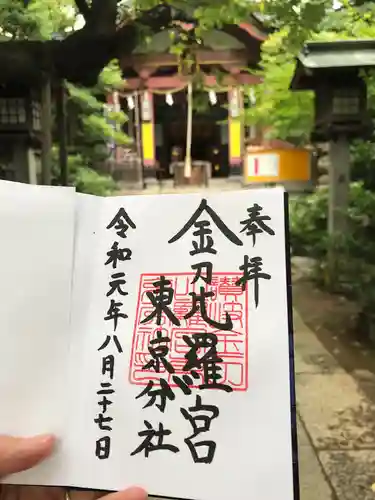 奉拝
金刀比羅宮
東京分社
令和元年八月二十七日